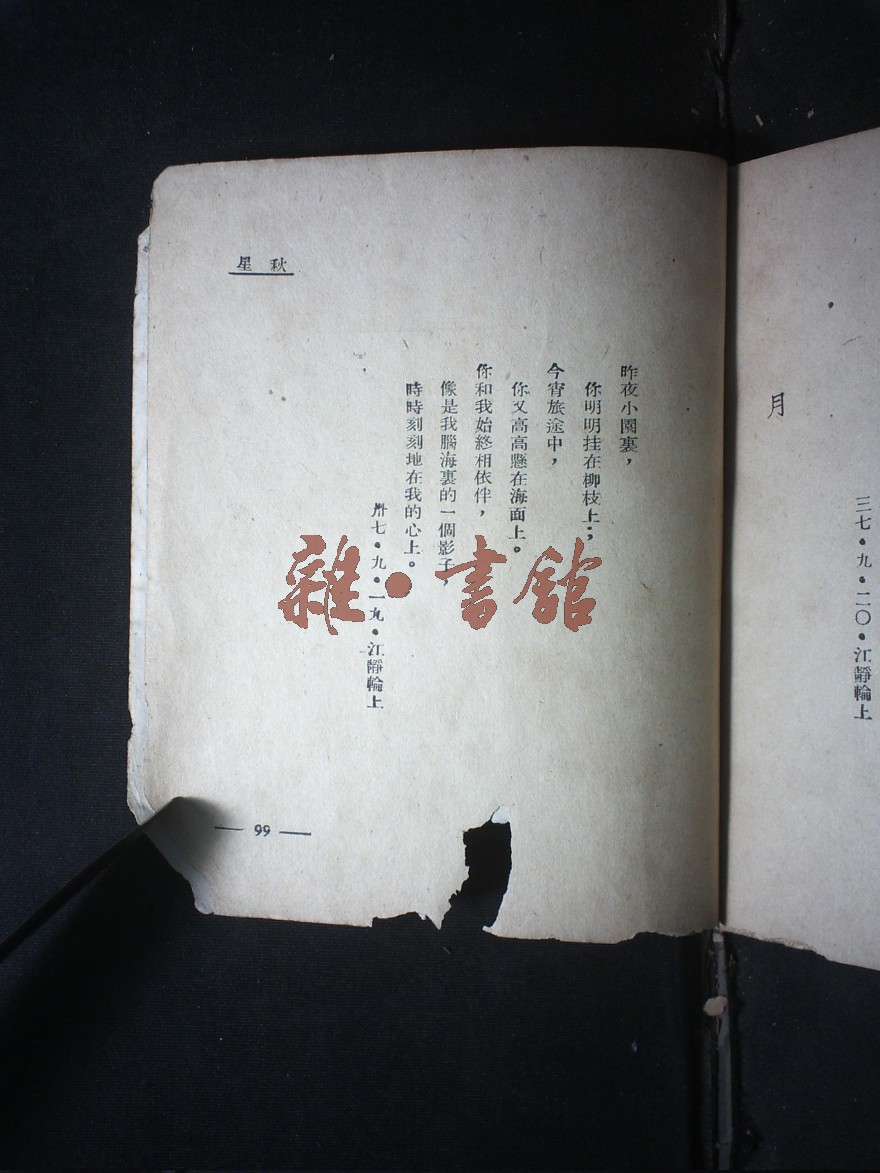 月
三七•九•二〇•江靜輪上
秋星
昨夜小園裏，
你明明挂在柳枝上；
今宵旅途中，
你又高高懸在海面上。
你和我始終相依伴，
像是我腦海裏的一個影子，
時時刻刻地在我的心上。
卅七•九•一九•江靜輪上
— 99 —
雜•書館